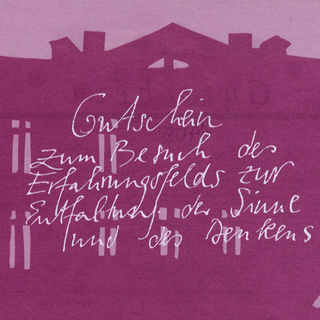 Gutschein
zum Besuch des
Erfahrungsfelds zur
Entfaltung der Sinne
und des Denkens